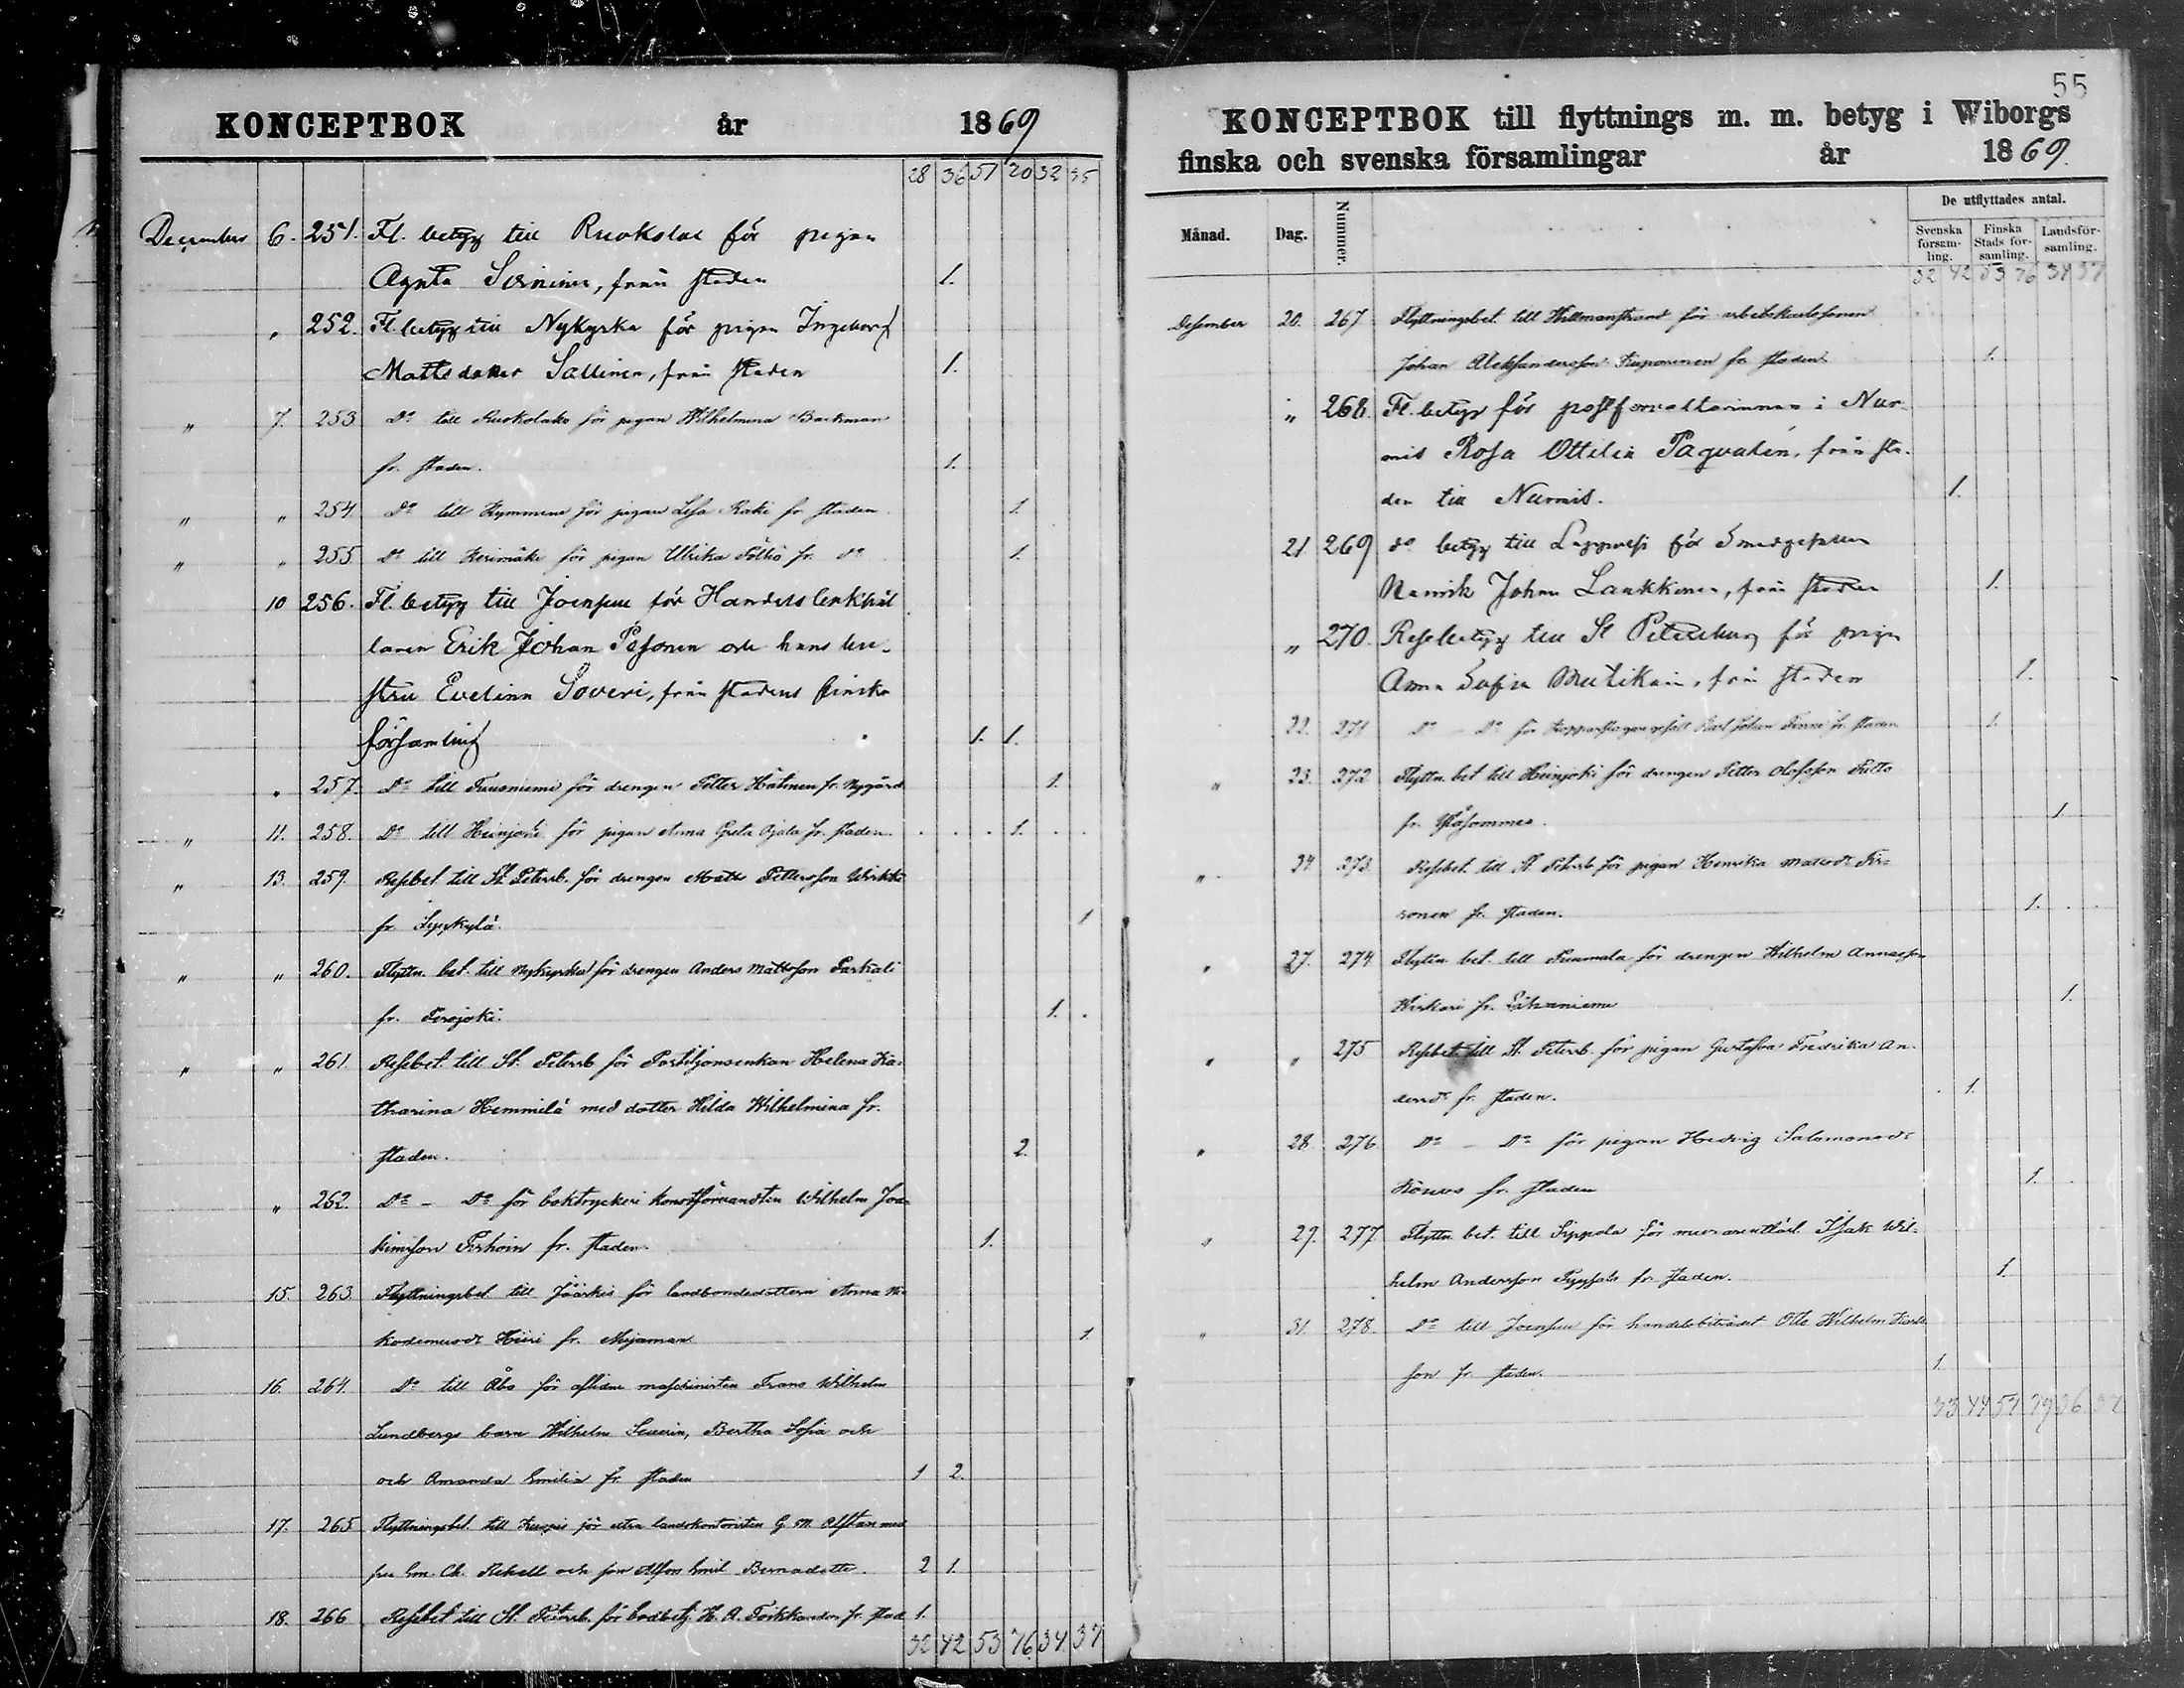 KONCEPTBOK år 1869
28 36 51 20 32 35
December 6. 251. Fl. betyg till Ruokolax för pigan
Agnta, från staden 1.
" 252. Fl. betyg till Nykyrka för pigan Ingeborg
Mattsdotter Sallinen, från staden 1.
" 7. 253 Do till Ruokolaks för pigan Wilhelmina Backman
fr. staden. 1.
" " 254. Do till Kymmene för pigan Lisa Raki fr staden 1.
" " 255. Do till Kerimäki för pigan Ulrika fr. do 1.
10 256. Fl. betyg till Joensuu för Handels
laren Erik Johan Pesonen och hans hu-
stru Evelina Soveri, från stadens finska
församling 1. 1.
" 257. Do till Tuusniemi för drengen Petter fr. Nygård 1.
" 11. 258. Do till Heinjoki för pigan Anna Greta Ojala fr. staden. 1.
" 13. 259. Resebet till St. Petersb. för drengen Matts Pettersson
fr. 1
" " 260. Flyttn. bet. till Nykyrka för drengen Anders Mattsson Parkali
fr. Perojoki. 1.
" " 261. Resebet. till St. Petersb för Helena Ka-
tharina Hemmilä med dotter Hilda Wilhelmina fr.
staden. 2.
" 262. Do – Do för boktryckeri konstförvandten Wilhelm Joa-
kimson fr. staden. 1.
15. 263. Flyttningsbet till Jääskis för landbondedottern Anna Ni-
kodemusdr fr. 1.
16. 264. Do till Åbo för aflidne maschinisten Frans Wilhelm
Lundbergs barn Wilhelm Severin, Bertha Sofia och
och Amanda Emilia fr. staden 1 2.
17. 265 Flyttningsbet. till Kuopio för extra landskontoristen G. M. med
fru Em. Ch. Rekell och son Alfons Emil Bernadotte. 2 1.
18. 266 Resebet till St. Petersb. för bodbetj. K. A. fr. stad 1.
32 42 53 76 34 37
55
KONCEPTBOK till flyttnings m. m. betyg i Wiborgs
finska och svenska församlingar år 1869.
Månad. Dag. Nummer. De utflyttades antal.
Svenska församling. Finska Stads församling. Landsförsamling.
32 42 53 76 34 37
Desember 20. 267 Flyttningsbet till Willmanstrand för arbetskarlssonen
Johan Aleksandersson fr staden. 1.
" 268. Fl. betyg för postforvalterinnan i Nur-
mis Rosa Ottilia Paqvalén, från sta-
den till Nurmis. 1.
21 269 do betyg till Lappvesi för Smedgesällen
Henrik Johan Laukkanen, från staden 1.
" 270. Resebetyg till St Petersburg för pigan
Anna Sofia Mutikain, från staden 1.
22. 271 Do – Do för Karl Johan fr. staden 1.
" 23. 272 Flyttn. bet till Heinjoki för drengen Petter Olofsson
fr. 1.
" 24 273. Resebet. till St. Petersb för pigan Henrika Mattsdr
ronen fr. staden. 1.
" 27. 274 Flyttn bet. till Puumala för drengen Wilhelm
fr. 1.
" " 275 Resebet. till St. Petersb. för pigan Gustafva Fredrika An-
dersdr fr. staden. 1.
" 28. 276 Do – Do för pigan Hedvig Salomonsdr
fr. staden 1.
" 29. 277 Flyttn. bet. till Sippola för Isak Wil-
helm Andersson fr. staden. 1.
" 31. 278. Do till Joensuu för handelsbiträdet Otto Wilhelm Karls-
son fr. staden. 1.
33 44 57 79 36 37